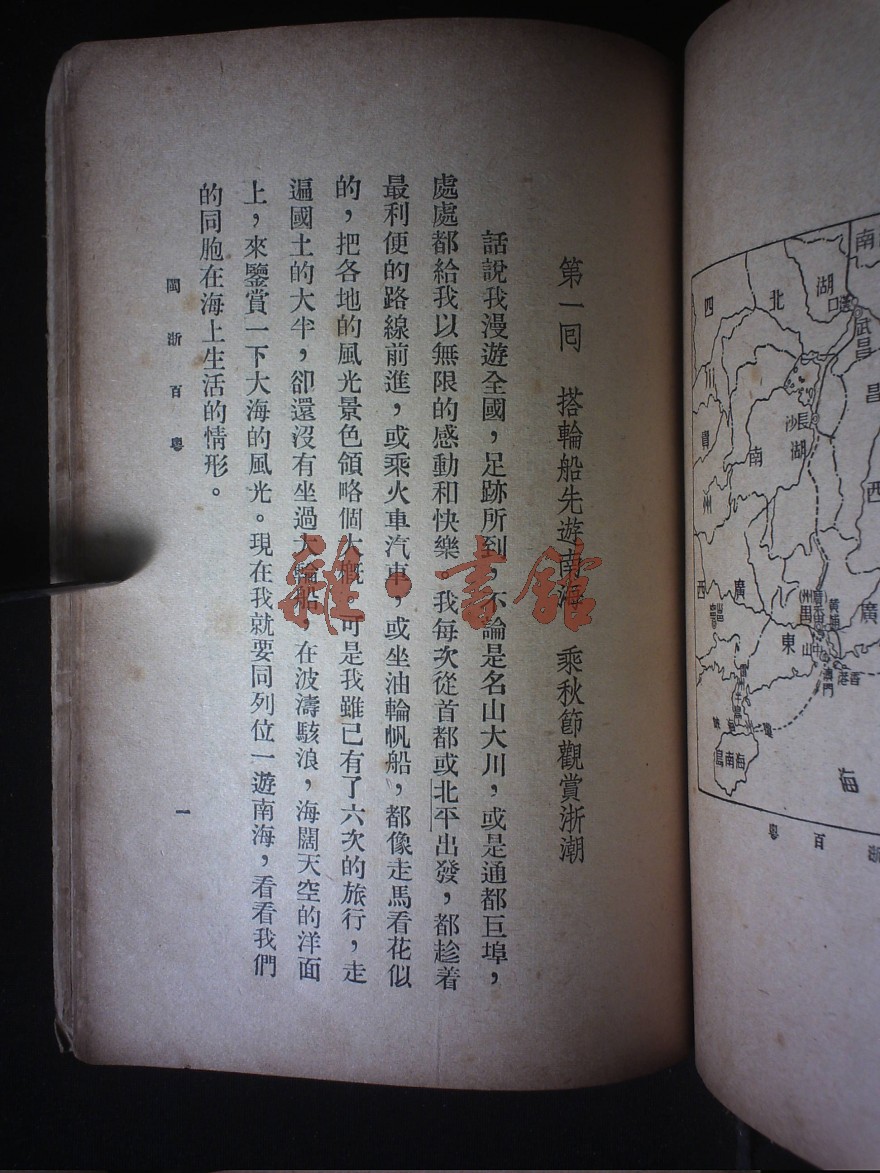 第一回　搭輪船先遊南海　乘秋節觀賞浙潮
話說我漫遊全國，足跡所到，不論是名山大川，或是通都巨埠，
處處都給我以無限的感動和快樂。我每次從首都或北平出發，都趁着
最利便的路線前進，或乘火車汽車，或坐油輪帆船，都像走馬看花似
的，把各地的風光景色領略個大概。可是我雖已有了六次的旅行，走
遍國土的大半，卻還沒有坐過大輪船，在波濤駭浪，海闊天空的洋面
上，來鑒賞一下大海的風光。現在我就要同列位一遊南海，看看我們
的同胞在海上生活的情形。
閩浙百粵
一
雜·書館
四
北
湖
南
武昌
昌
長沙
湖
南
貴
州
西
廣
西
東
廣
番禺
中山
黃埔
澳門
香港
海南島
海
浙百粵